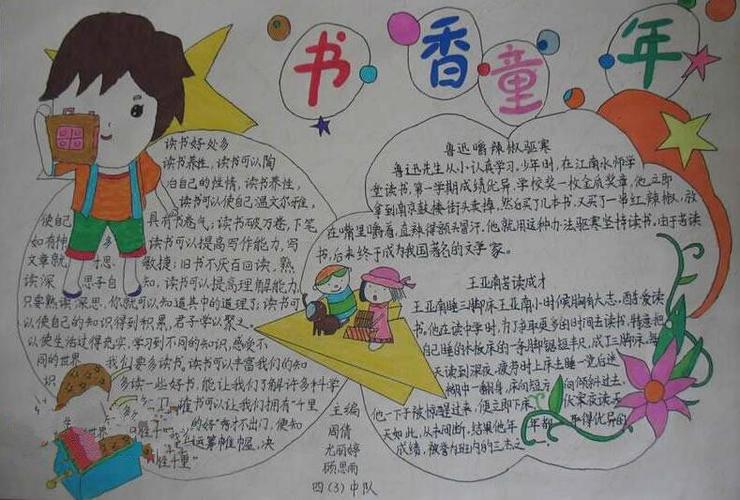 书香童年
读书好处多
读书养性，读书可以陶
冶自己的性情，读书养性，
读书可以使自己温文尔雅，
使自己 具有书卷气；读书破万卷，下笔
如有神 多 读书可以提高写作能力，写
文章就 才思 敏捷；旧书不厌百回读，熟
读深 思子自 知，读书可以提高理解能力，
只要熟读深思，你就可以知道其中的道理了；读书可
以使自己的知识得到积累，君子学以聚之。
以使生活过得充实，学习到不同的知识，感受不
同的世界 我们要多读书，读书可以丰富我们的知
识 多读一些好书，能让我们了解许多科学
读书可以让我们拥有“千里
世界 的好”秀才不出门，便知
运筹帷幄，决
千里”
鲁迅嚼辣椒驱寒
鲁迅先生从小认真学习。少年时，在江南水师学
堂读书，第一学期成绩优异，学校奖一枚金质奖章，他立即
拿到南京鼓楼街头卖掉，然后买了几本书，又买了一串红辣椒，放
在嘴里嚼着，直辣得额头冒汗。他就用这种办法驱寒坚持读书，由于苦读
书，后来终于成为我国著名的文学家。
王亚南苦读成才
王亚南睡三脚床王亚南小时候胸有大志，酷爱读
书，他在读中学时，为了争取更多的时间去读书，特意把
自己睡的木板床的一条脚锯短半尺，成了三脚床。每
天读到深夜，疲劳时上床去睡一觉后迷
糊中一翻身，床向短方 向倾斜过去，
他一下子被惊醒过来，便立即下床 伏案夜读天
天如此，从未间断，结果他年 年都 取得优异的
成绩，被誉为班内的三杰之一
主编
周倩
尤丽婷
顾思雨
四(3)中队